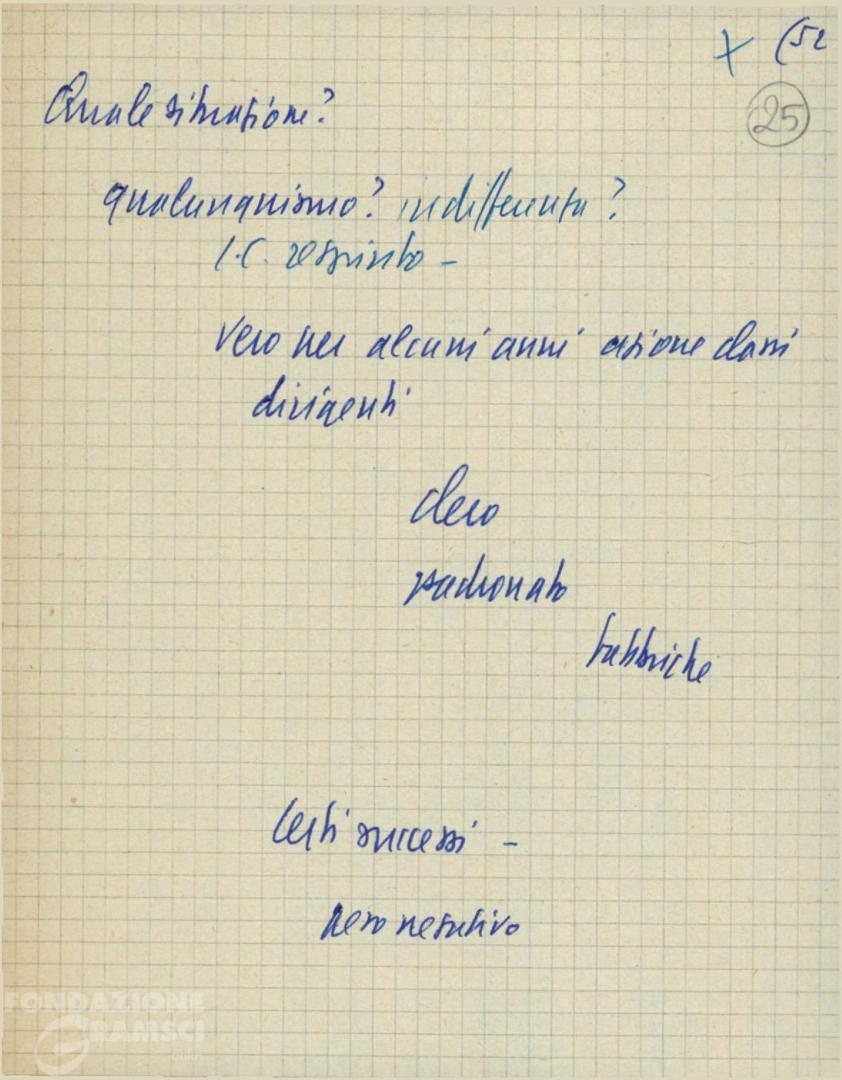 x (52
25
Quale situazione?
qualunquismo? indifferenza?
I.C. respinto -
Vero per alcuni anni azione classi
dirigenti
clero
padronato
fabbriche
Certi successi -
peso negativo
FONDAZIONE
GRAMSCI